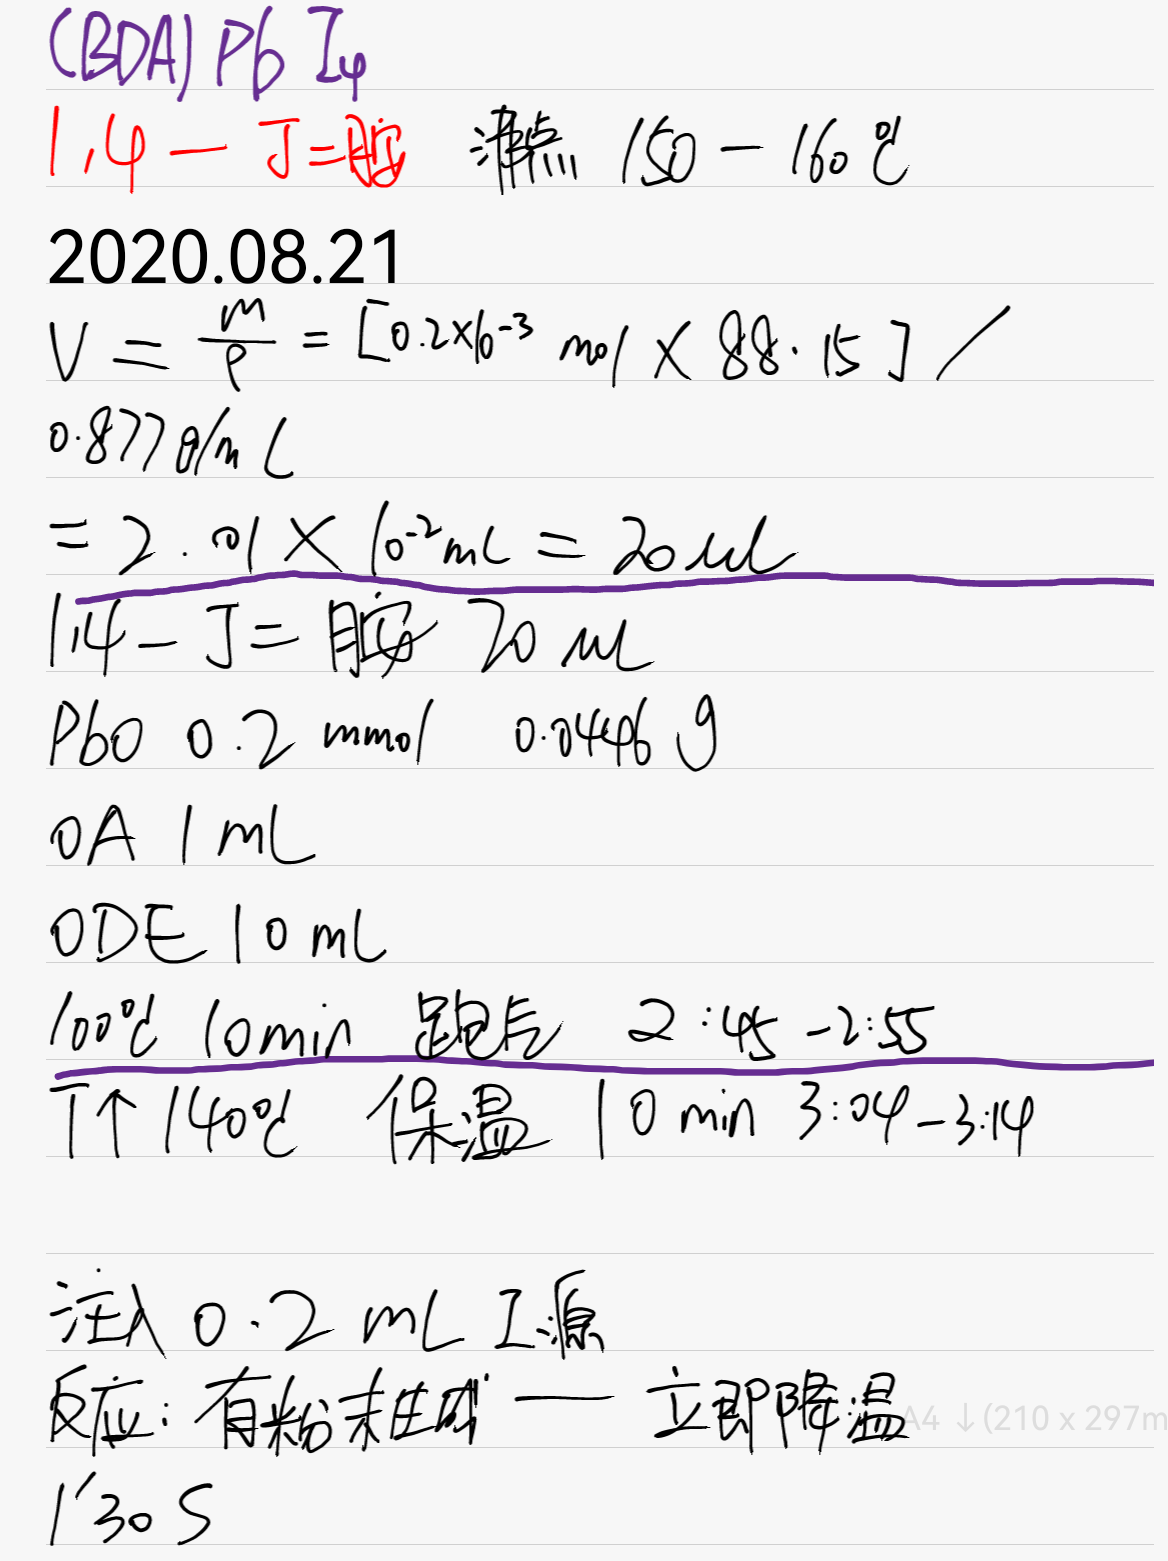 (BDA)PbI₄
1,4-丁二胺 沸点 150-160℃
2020.08.21
V = m/ρ = [0.2×10⁻³ mol × 88.15] /
0.877g/mL
= 2.01 × 10⁻²mL = 20μL
1,4-丁二胺 20μL
PbO 0.2 mmol 0.0446g
OA 1mL
ODE 10mL
100℃ 10min 跑气 2:45-2:55
T↑140℃ 保温 10min 3:04-3:14
注入0.2mL I源
反应:有粉末生成 — 立即降温
A4 ↓(210 x 297m
1'30S